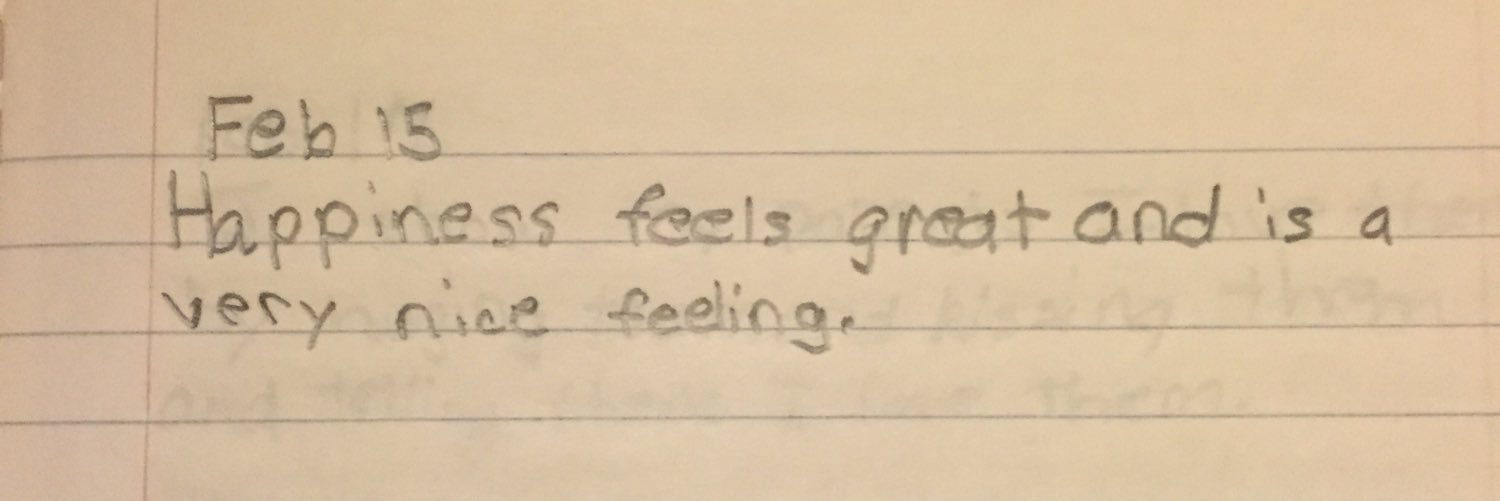 Feb 15
Happiness feels great and is a
very nice feeling.